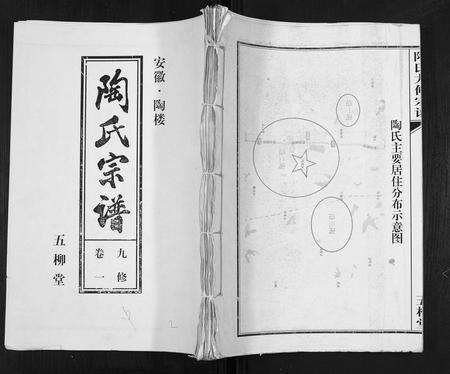 安徽·陶楼
陶氏宗谱
九修
卷一
五柳堂
陶氏九修宗谱
陶氏主要居住分布示意图
五柳堂